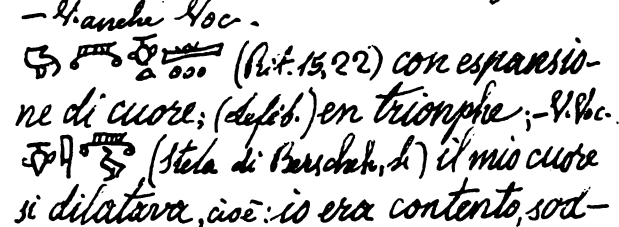 – V. anche Voc.
(Rit. 15, 22) con espansio-
ne di cuore; (Lefèb.) en trionphe; – V. Voc.
(Stela di Berscheh, h) il mio cuore
si dilatava, cioè: io era contento, sod-